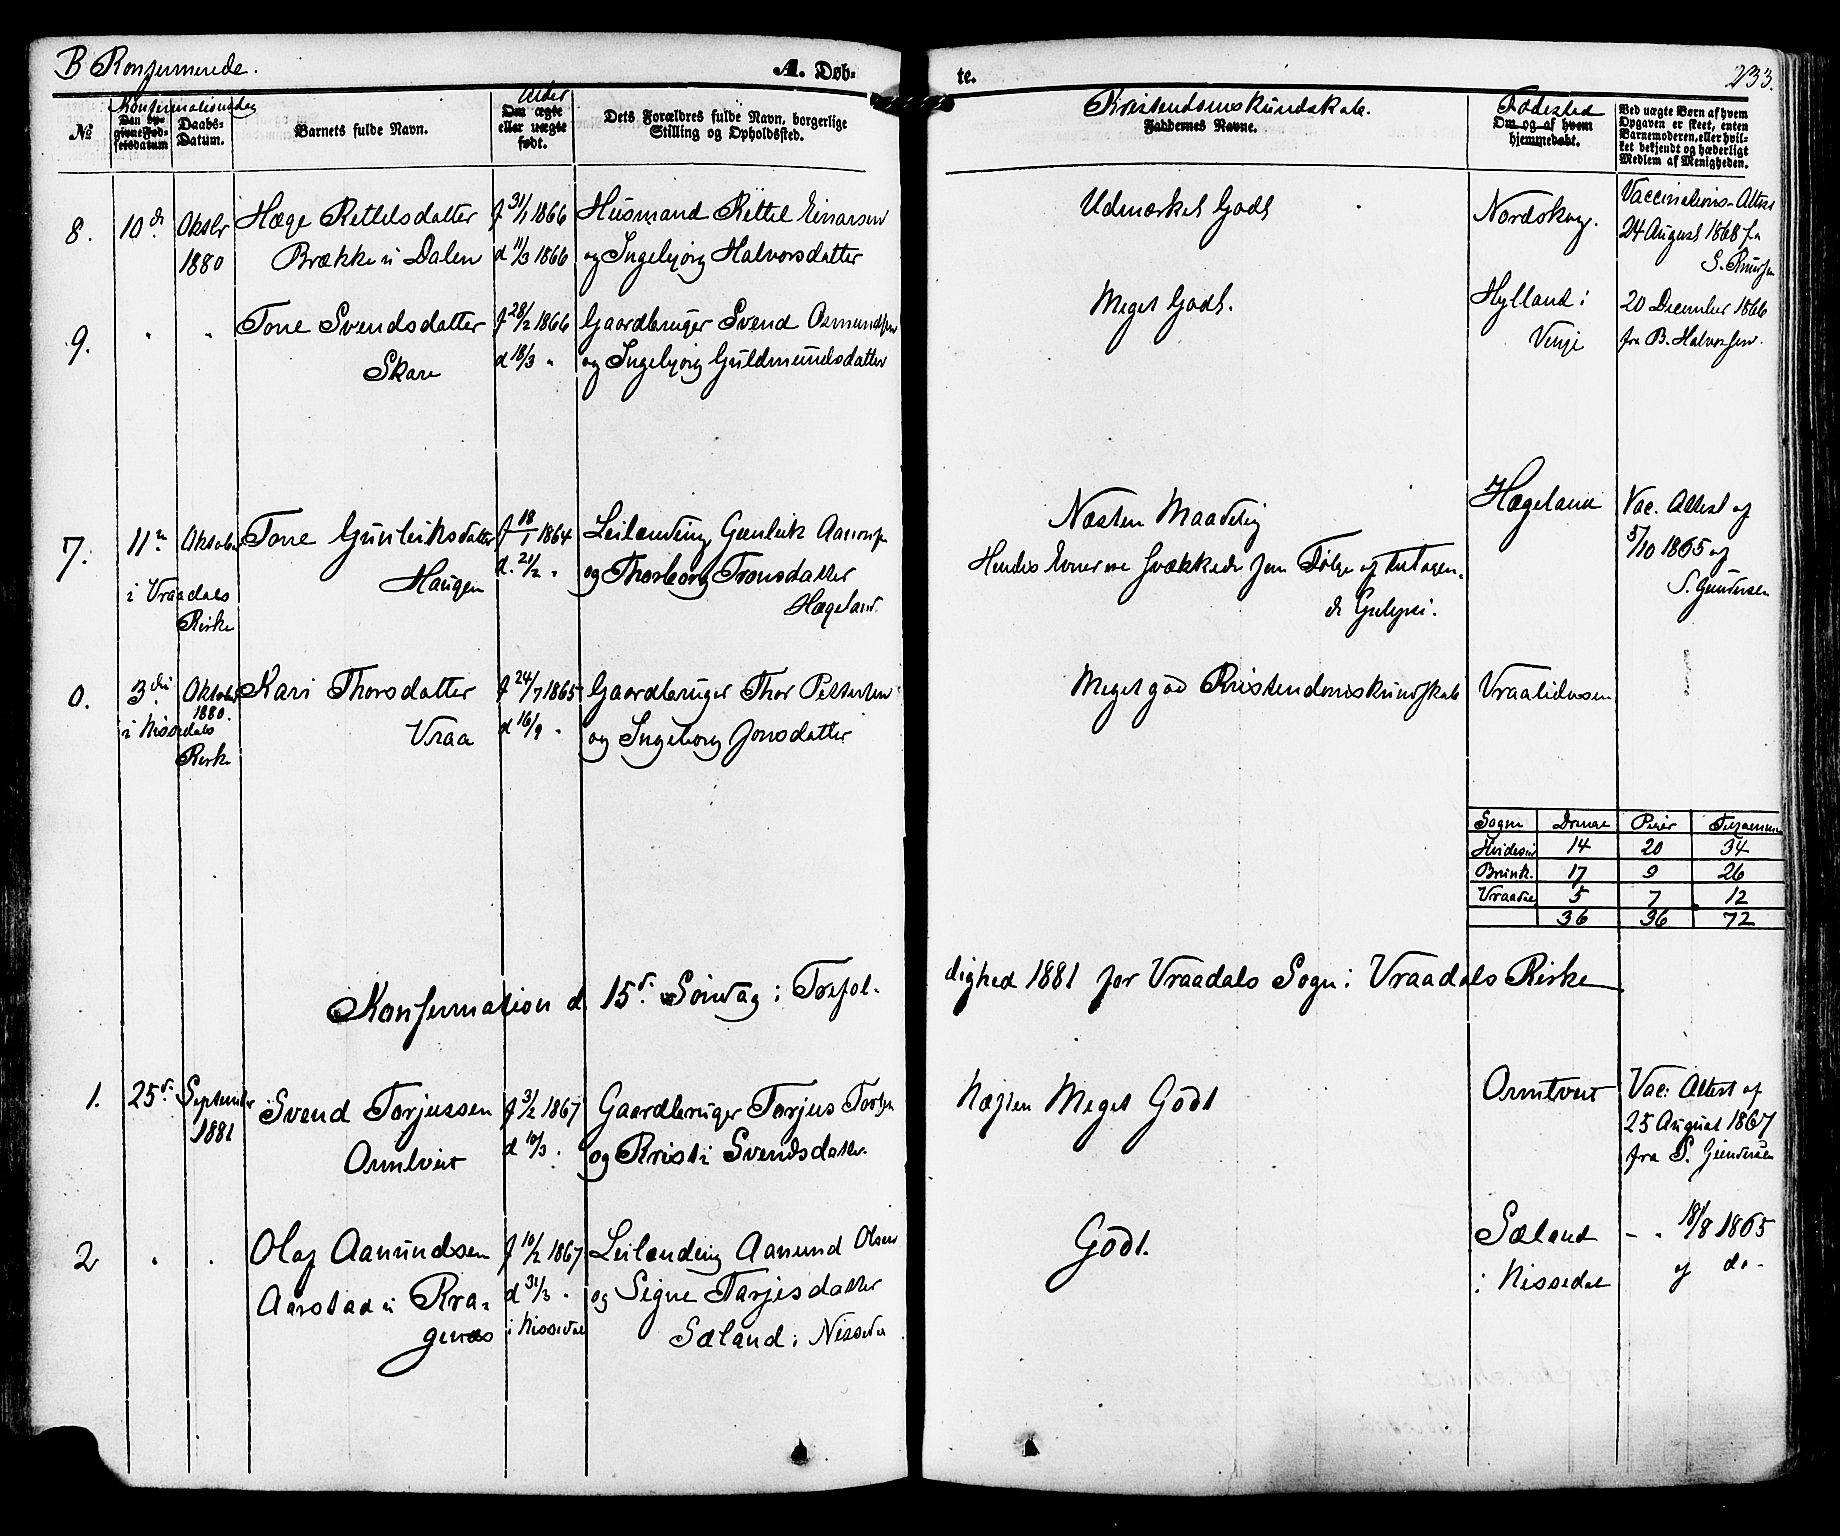 B Konfirmerede.
A. Døb-
te.
233.
Konfirmationsdag
Alder
Kristendomskundskab.
Fødested
No
Den op-
givne Fød-
selsdatum
Daabs-
Datum.
Barnets fulde Navn.
Om ægte
eller uægte
født.
Dets Forældres fulde Navn, borgerlige
Stilling og Opholdssted.
Faddernes Navne.
Om og af hvem
hjemmedøbt.
Ved uægte Børn af hvem
Opgaven er skeet, enten
Barnemoderen, eller hvil-
ket bekjendt og hæderligt
Medlem af Menigheden.
8. 10de Oktbr Hæge Kettelsdatter f 31/1 1866 Husmand Kettel Einarsen Udmærket Godt Nordskog. Vaccinations-Attest
1880 Brække i Dalen d 11/3 1866 og Ingebjørg Halvorsdatter 24 August 1868 fra
S. Knudsen
9. " " Tone Svendsdatter f 28/2 1866 Gaardbruger Svend Osmundsen Meget Godt. Hylland i 20 December 1866
Skare d 18/3 " og Ingebjørg Guldmundsdatter Vinje fra B. Halvorsen.
7. 11te Oktober Tone Gunleiksdatter f 18/1 1864 Leilænding Gunleik Aanonsen Næsten Maadelig Hægeland Vac. Attest af
i Vraadals Haugen d. 21/2 " og Thorborg Tronsdatter Hendes Evner ere svækkede som Følge af 5/10 1865 af
Kirke Hægeland. S. Gundersen
0. 3die Oktober Kari Thorsdatter f 24/7 1865 Gaardbruger Thor Pettersen Meget god Kristendomskundskab Vraalidosen
1880.
i Nissedals Vraa d 16/9 " og Ingeborg Jonsdatter
Kirke
Sogne Drenge Piger Tilsammen
Hvidesø 14 20 34
Brunk. 17 9 26
Vraadal 5 7 12
36 36 72
Konfirmation d. 15de Søndag i Trefol-
dighed 1881 for Vraadals Sogn i Vraadals Kirke
1. 25de September Svend Torjussen f 3/2 1867 Gaardbruger Torjus Næsten Meget Godt Omtveit Vac: Attest af
1881 Omtveit d 10/3 " og Kristi Svendsdatter 25 August 1867
fra S. Gundersen
2 " " Olaf Aanundsen f 10/2 1867 Leilænding Aanund Olsen Godt. Sæland - " 18/8 1865
Aarstad i Kra- d 31/3 " og Signe Tarjesdatter i Nissedal af do-
gerøs i Nissedal Sæland i Nissedal